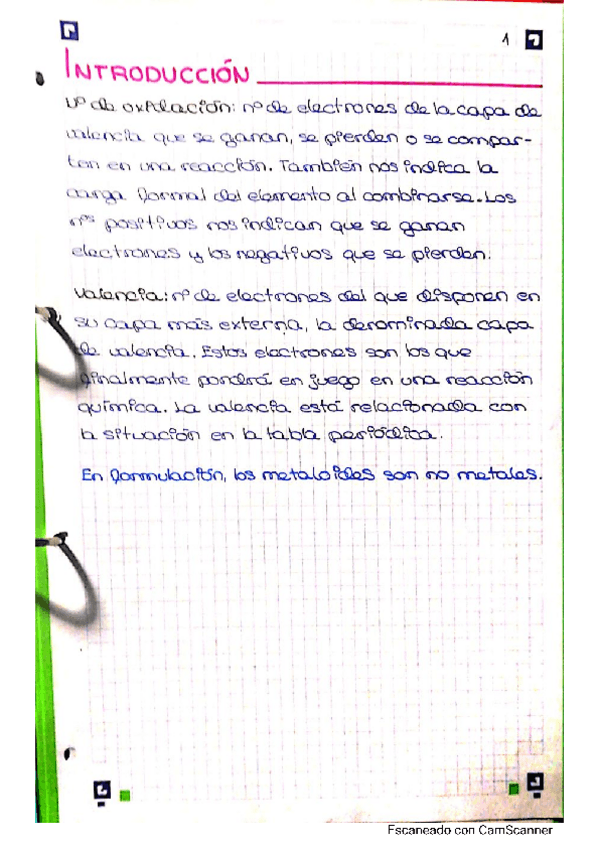 1
INTRODUCCIÓN
Nº de oxidación: nº de electrones de la capa de
valencia que se ganan, se pierden o se compar-
ten en una reacción. También nos indica la
carga formal del elemento al combinarse. Los
nºs positivos nos indican que se ganan
electrones y los negativos que se pierden.
Valencia: nº de electrones del que disponen en
su capa más externa, la denominada capa
de valencia. Estos electrones son los que
finalmente pondrá en juego en una reacción
química. La valencia está relacionada con
la situación en la tabla periódica.
En formulación, los metaloides son no metales.
Escaneado con CamScanner